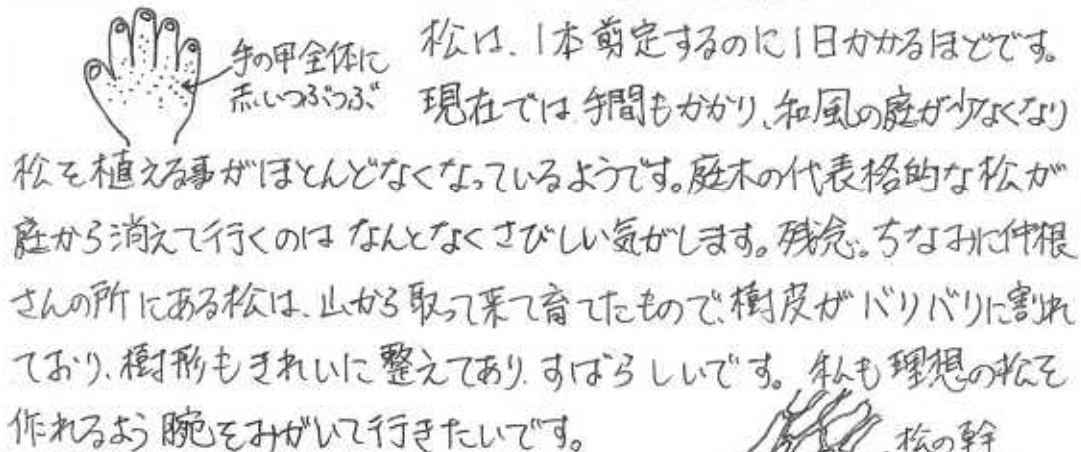 手の甲全体に
赤いつぶつぶ
松は、1本剪定するのに1日かかるほどです。
現在では手間もかかり、和風の庭が少なくなり
松を植える事がほとんどなくなっているようです。庭木の代表格的な松が
庭から消えて行くのはなんとなくさびしい気がします。残念。ちなみに仲根
さんの所にある松は、山から取って来て育てたもので、樹皮がバリバリに割れ
ており、樹形もきれいに整えてあり、すばらしいです。私も理想の松を
作れるよう腕をみがいて行きたいです。
松の幹